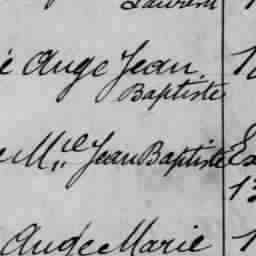 Laurent
Ange Jean
Baptiste
M.ie Jean Baptiste
Ange Marie